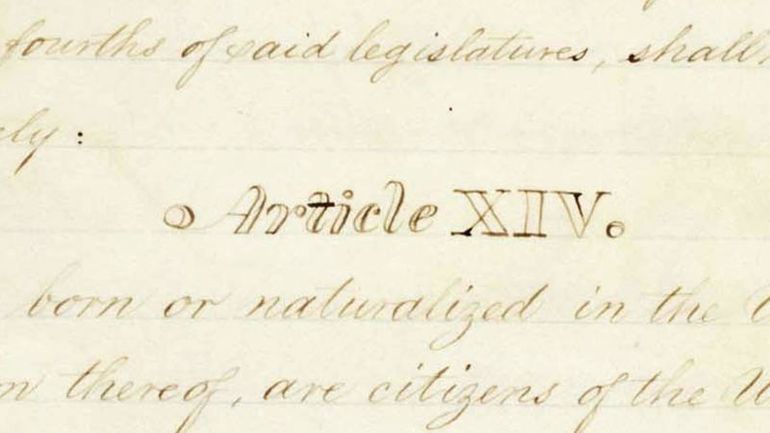 fourths of said legislatures, shall
ely:
Article XIV.
born or naturalized in the U
n thereof, are citizens of the U